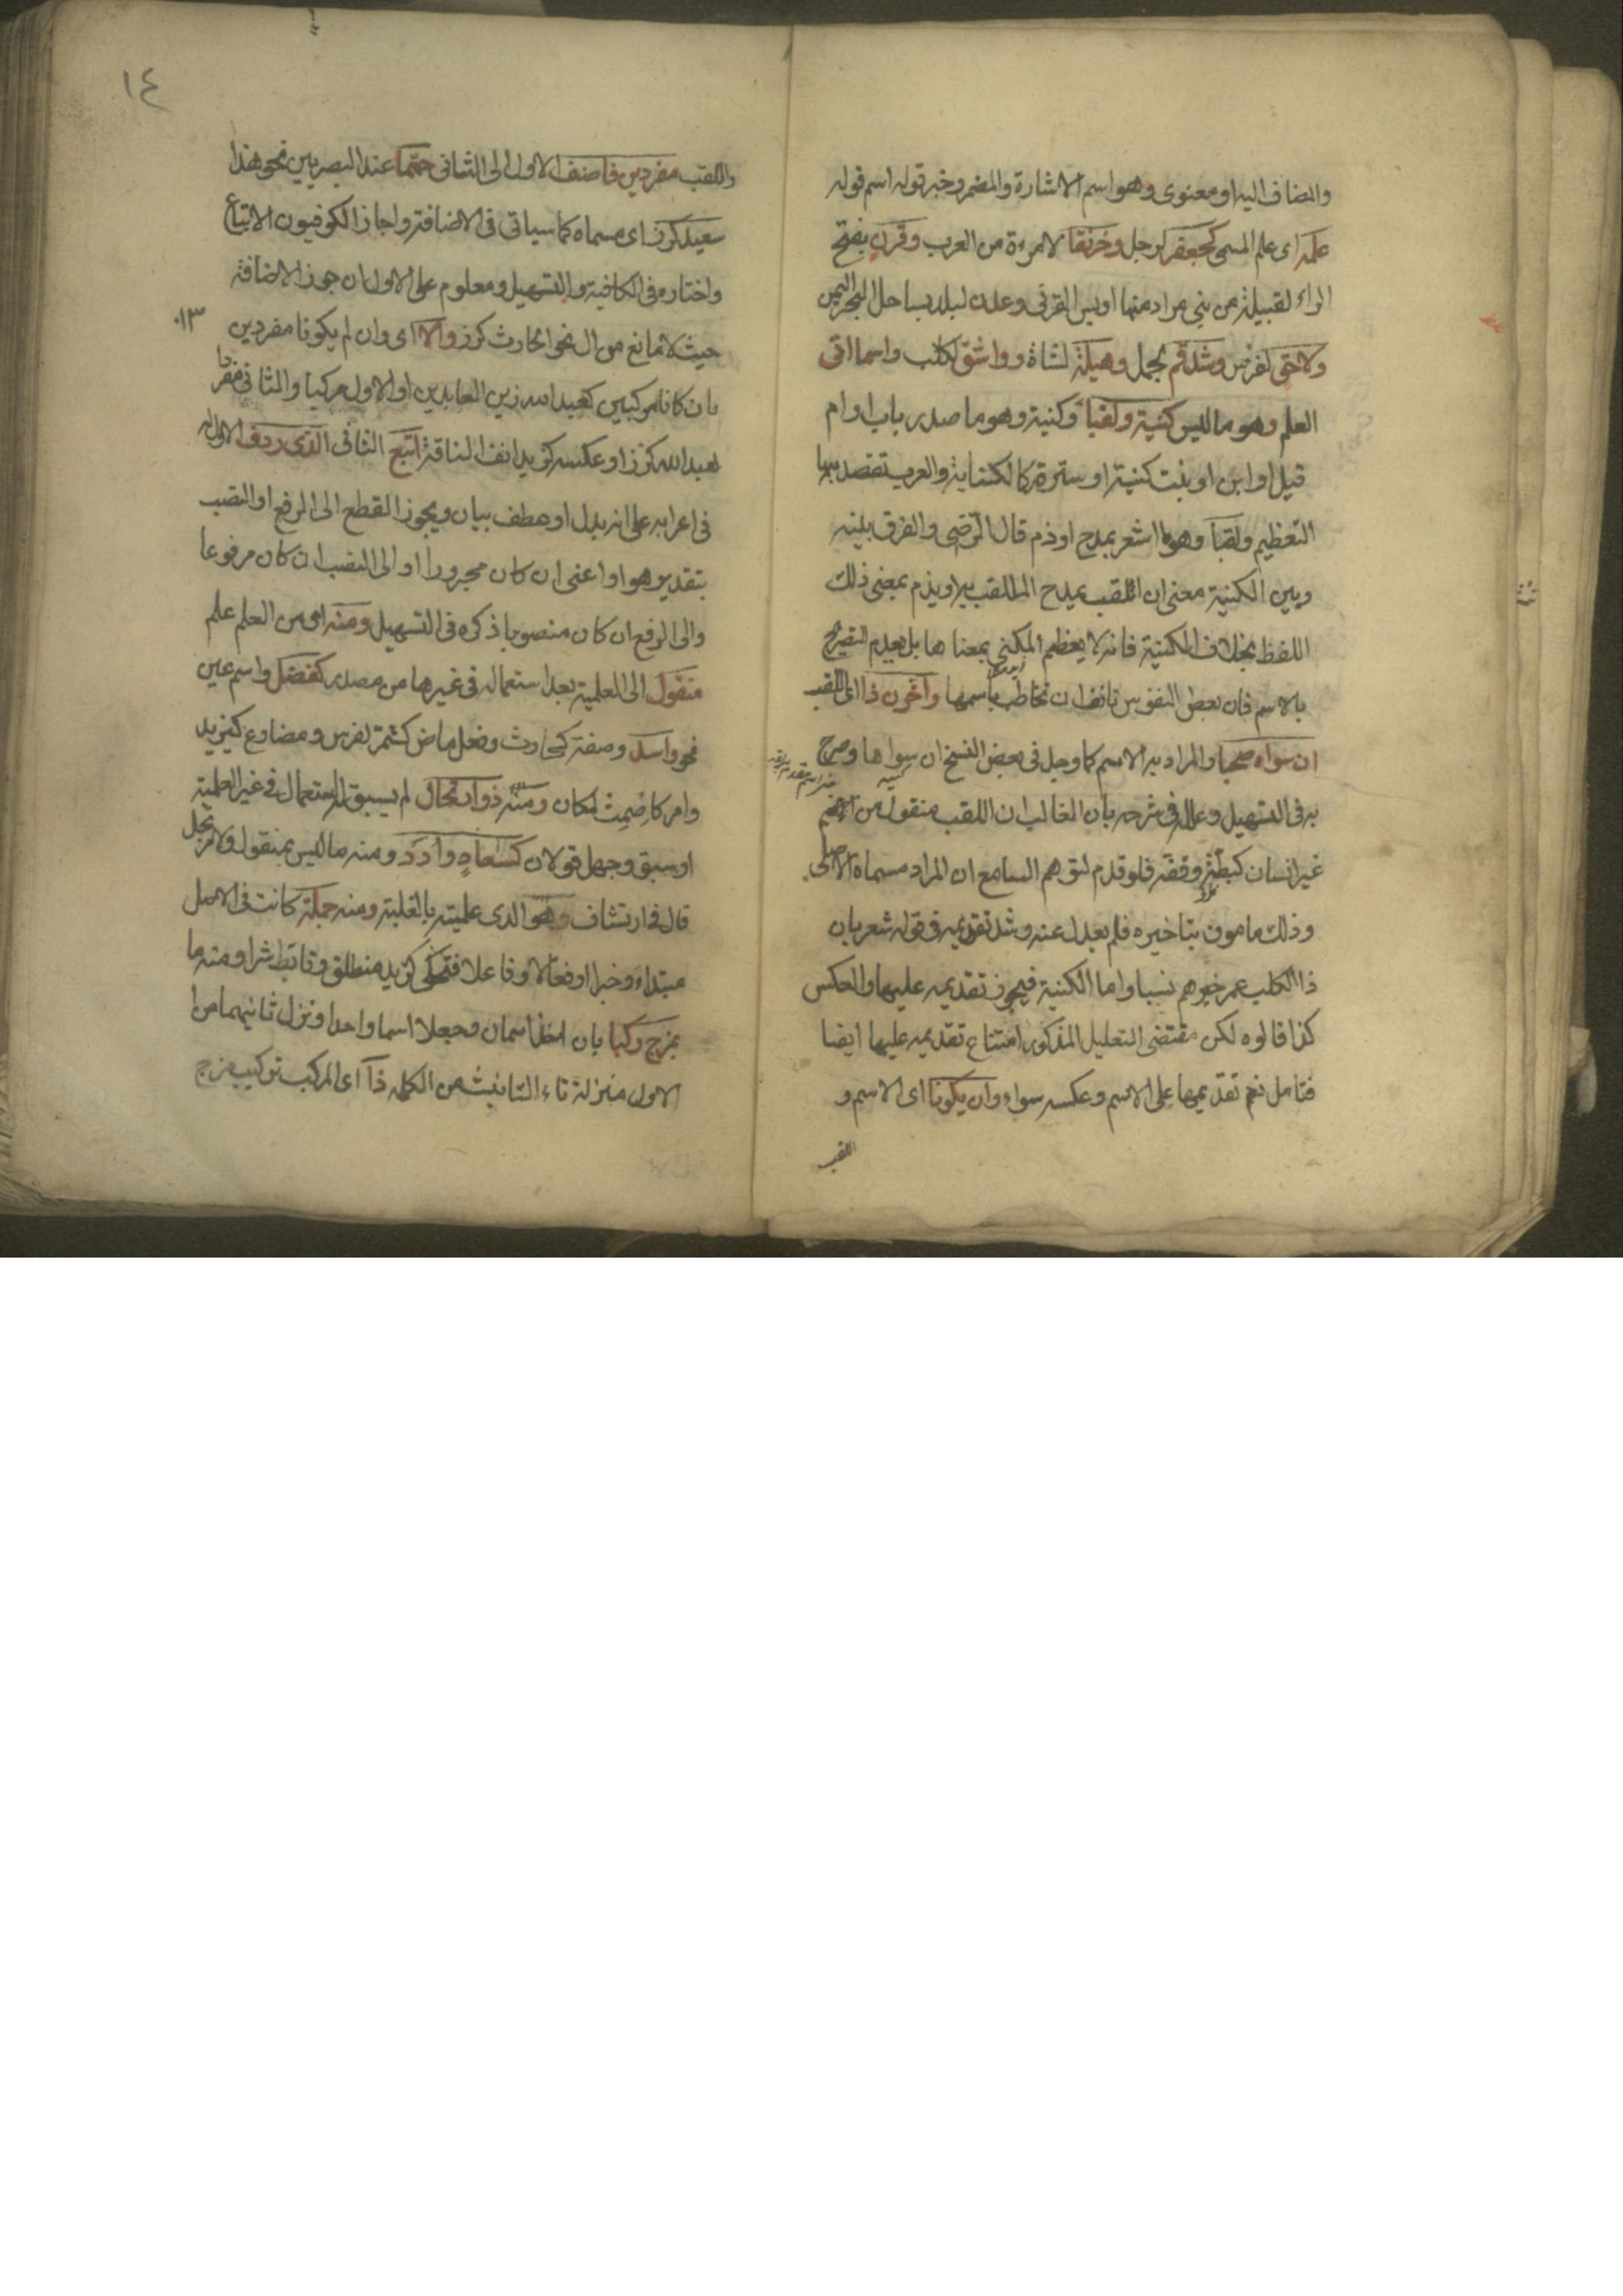 والمضاف اليه او معنوى وهو اسم الاشارة والمضمر وخبر قوله اسم قوله
علمه اى علم المسمى كجعفر لرجل وخرنقا لامرءة من العرب وقرن بفتح
الراء لقبيلة من بنى مراد منها اويس القرنى وعدن لبلد بساحل البحر اليمن
ولاحق لفرس وشذقم لجمل وهيلة لشاة وواشق لكلب واسما اتى
العلم وهو ما ليس كنية ولقبا وكنية وهو ما صدر باب او ام
قيل او ابن او بنت كنية او سترة كالكناية والعرب تقصد بها
التعظيم ولقبا وهو ما اشعر بمدح او ذم قال الرضى والفرق بينه
وبين الكنية معنى ان اللقب يمدح الملقب به او يذم بمعنى ذلك
اللفظ بخلاف الكنية فانه لا يعظم المكنى بمعناها بل بعدم التصريح
بالاسم فان بعض النفوس تانف ان تخاطب باسمها وآخرن ذا اى اللقب
ان سواه صحبا والمراد به الاسم كما وجد فى بعض النسخ ان سواها وصرح
به فى التسهيل وعلله فى شرحه بان الغالب ان اللقب منقول من اسم
غير انسان كبطة وقفة فلو قدم لتوهم السامع ان المراد مسماه الاصلى
وذلك مامون بتاخيره فلم يعدل عنه وشذ تقديمه فى قوله شعر بان
ذا الكلب عمر خيرهم نسبا واما الكنية فيجوز تقديمه عليها والعكس
كذا قالوه لكن مقتضى التعليل المذكور امتناع تقديمه عليها ايضا
فتامل نعم تقديمها على الاسم وعكسه سواء وان يكونا اى الاسم و
اللقب
١٤
واللقب مفردين فاضف الاول الى الثانى حتما عند البصريين نحو هذا
سعيد كرز اى مسماه كما سياتى فى الاضافة واجاز الكوفيون الاتباع
واختاره فى الكافية والتسهيل ومعلوم على الاول ان جوز الاضافة
حيث لا مانع من ال نحو الحارث كرز والا اى وان لم يكونا مفردين
٠١٣
بان كانا مركبين كعبد الله زين العابدين او الاول مركبا والثانى مفردا
كعبد الله كرز او عكسه كزيد انف الناقة اتبع الثانى الذى ردف الاول له
فى اعرابه على انه بدل او عطف بيان ويجوز القطع الى الرفع او النصب
بتقدير هو او اعنى ان كان مجرورا او الى النصب ان كان مرفوعا
والى الرفع ان كان منصوبا ذكره فى التسهيل ومنه اى من العلم علم
منقول الى العلمية بعد استعماله فى غيرها من مصدر كفضل واسم عين
نحو واسد وصفة كحارث وفعل ماض كشمر لفرس ومضارع كيزيد
وامر كاصمت لمكان ومنه ذو ارتجال لم يسبق له استعمال فى غير العلمية
او سبق وجهل قولان كسعاد وادد ومنه ما ليس بمنقول ولا مرتجل
قال فى ارتشاف وهو الذى علميته بالغلبة ومنه جملة كانت فى الاصل
مبتداء وخبرا او فعلا وفاعلا فتحكى كزيد منطلق وتابط شرا ومنه ما
بمزج ركبا بان اخذ اسمان وجعلا اسما واحدا ونزل ثانيهما من
الاول منزلة تاء التانيث من الكلمه ذا اى المركب تركيب مزج